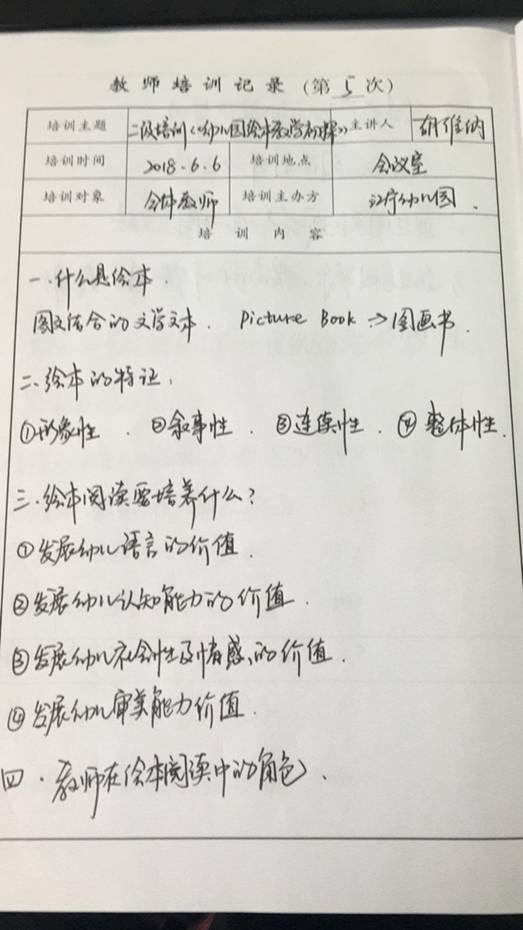 教师培训记录(第5次)
培训主题 二级培训《幼儿园绘本教学初探》 主讲人 胡维纳
培训时间 2018.6.6 培训地点 会议室
培训对象 全体教师 培训主办方 幼儿园.
培训内容
一.什么是绘本.
图文结合的文学文本. Picture Book → 图画书.
二.绘本的特证:
①形象性. ②叙事性. ③连续性. ④整体性.
三.绘本阅读要培养什么?
①发展幼儿语言的价值.
②发展幼儿认知能力的价值.
③发展幼儿社会性及情感的价值.
④发展幼儿审美能力价值.
四.教师在绘本阅读中的角色.